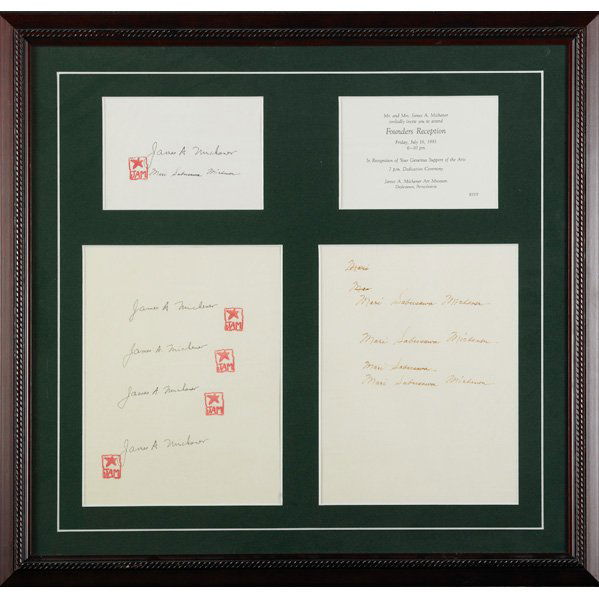 James A. Michener
JAM
Mari Sabusawa Michener
Mr. and Mrs. James A. Michener
cordially invite you to attend
Founders Reception
Friday, July 16, 1993
6–10 pm
In Recognition of Your Generous Support of the Arts
7 pm Dedication Ceremony
James A. Michener Art Museum
Doylestown, Pennsylvania
RSVP
James A. Michener
JAM
James A. Michener
JAM
James A. Michener
JAM
James A. Michener
JAM
Mari
Mari Sabusawa Michener
Mari Sabusawa Michener
Mari Sabusawa
Mari Sabusawa Michener